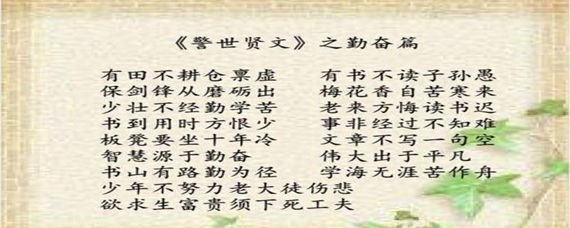 《警世贤文》之勤奋篇
有田不耕仓禀虚 有书不读子孙愚
保剑锋从磨砺出 梅花香自苦寒来
少壮不经勤学苦 老来方悔读书迟
书到用时方恨少 事非经过不知难
板凳要坐十年冷 文章不写一句空
智慧源于勤奋 伟大出于平凡
书山有路勤为径 学海无涯苦作舟
少年不努力老大徒伤悲
欲求生富贵须下死工夫